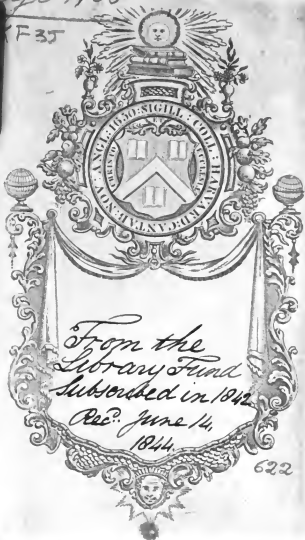 F 35
SIGILL : COLL : HARVARDCANTAB : NOV. ANGL : 1650
CHRISTO
ECCLESIÆ
From the
Library Fund
Subscribed in 1842
Rec^d. June 14,
1844.
622